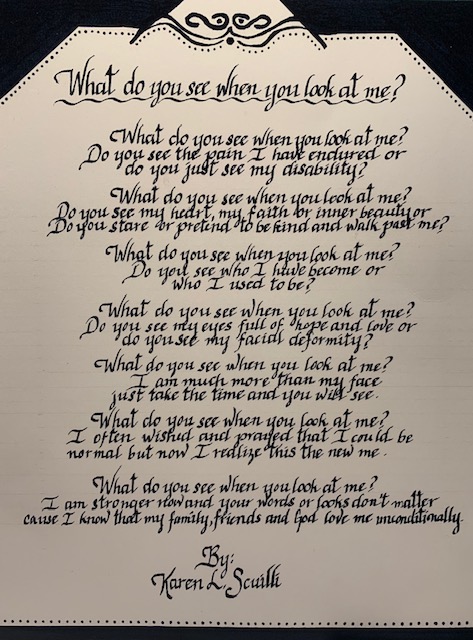 What do you see when you look at me?
What do you see when you look at me?
Do you see the pain I have endured or
do you just see my disability?
What do you see when you look at me?
Do you see my heart, my faith or inner beauty or
Do you stare or pretend to be kind and walk past me?
What do you see when you look at me?
Do you see who I have become or
who I used to be?
What do you see when you look at me?
Do you see my eyes full of hope and love or
do you see my facial deformity?
What do you see when you look at me?
I am much more than my face
just take the time and you will see.
What do you see when you look at me?
I often wished and prayed that I could be
normal but now I realize this the new me.
What do you see when you look at me?
I am stronger now and your words or looks don't matter
cause I know that my family, friends and God love me unconditionally.
By:
Karen L. Scuilli